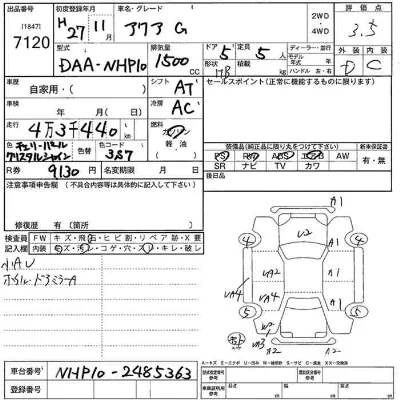 出品番号 初度登録年月 車名・グレード 2WD ・ 4WD 評価点
[1847] 7120 H 27 11月 アクア G 3.5
型式 排気量 ドア 5 5人 ディーラー・並行 外装 内装
DAA-NHP10 1500cc 形状 HB モデル 年 ハンドル 左・右 D C
車歴 自家用・( ) シフト AT セールスポイント(正常に機能するものに限ります)
車検 年 月( ) 冷房 AC
走行 4万3千440 燃料 ガソリン 軽油
色 チェリーパールクリスタルシャイン 色替 色コード 3S7
装備品(純正品に限り丸をつけて下さい) 新車保証
PS PW ABS エアB AW 有・無
SR ナビ TV カワ
R券 9130 円 名変期限 月 日
注意事項申告報(不具合内容等は具体的に記入して下さい) 後日品
修復歴 有( )箇所
検査員 FW キズ・飛石・ヒビ割・リペア跡・X要
記入欄 内装 キズ・汚レ・コゲ・穴・スリ・キレ・破レ
小AU
A1 U2 A1 A1 4 4 5 5 UA4 UA2 W2 A2 A2
A-キズ E-エクボ U-凹み W-補修跡 S-サビ C-腐食 XX-交換済
車台番号 NHP10-2485363
登録番号